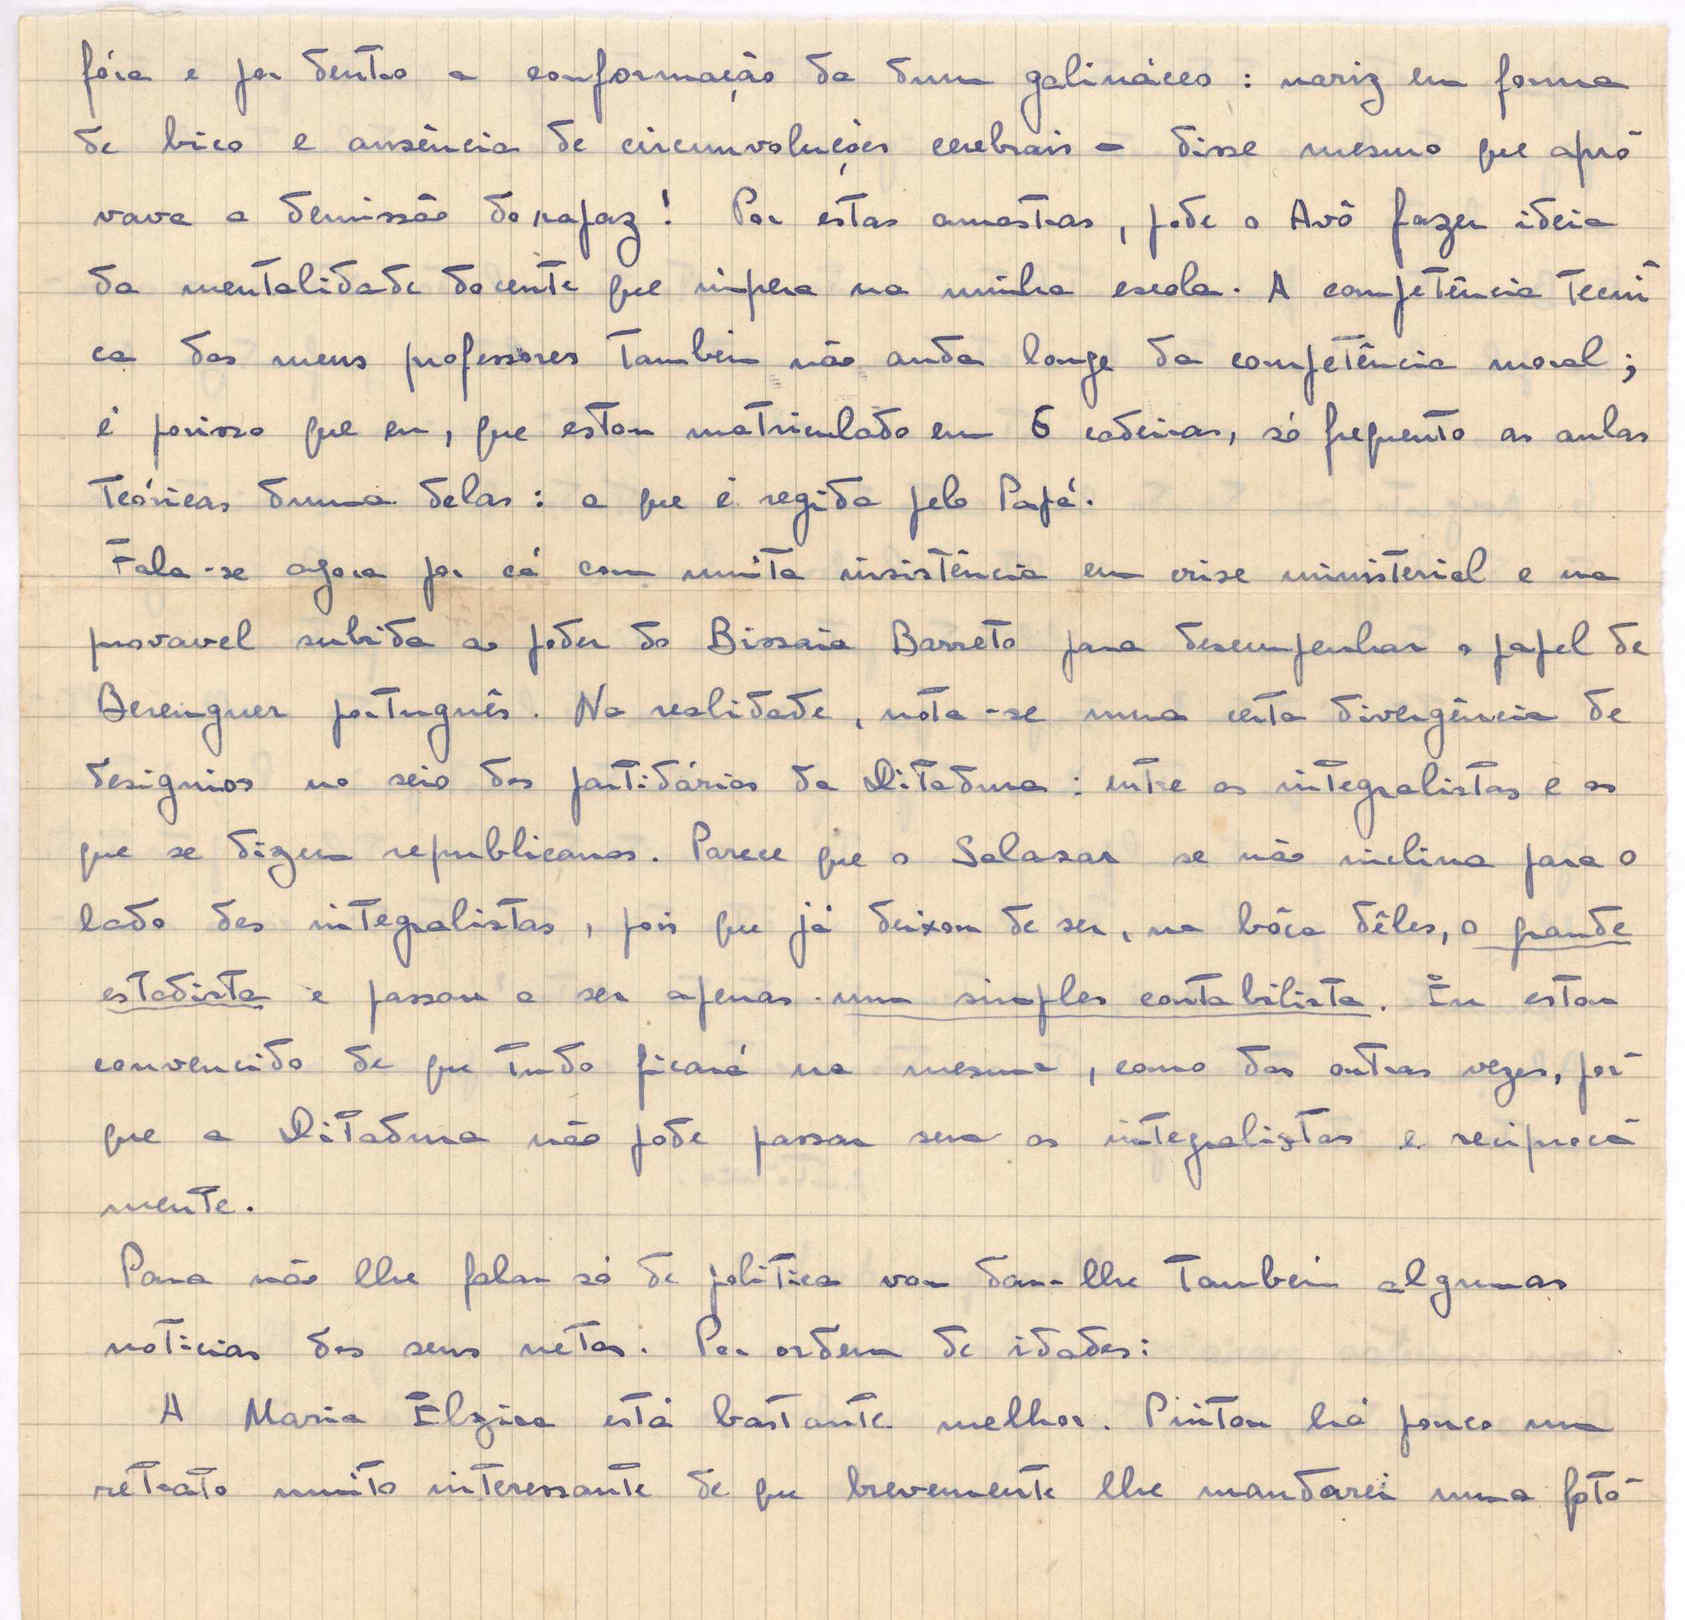 fóra e por dentro a conformação da dum galináceo : nariz em forma
de bico e ausência de circumvoluções cerebrais - disse mesmo que apro
vava a demissão do rapaz! Por estas amostras, pode o Avô fazer ideia
da mentalidade docente que impera na minha escola. A competência tecni
ca dos meus professores tambem não anda longe da competência moral;
é porisso que eu, que estou matriculado em 6 cadeiras, só frequento as aulas
teóricas duma delas: a que é regida pelo Papá.
Fala-se agora por cá com muita insistência em crise ministerial e na
provavel subida ao poder do Bissaia Barreto para desempenhar o papel de
Berenguer português. Na realidade, nota-se uma certa divergência de
designios no seio dos partidários da Ditadura: entre os integralistas e os
que se dizem republicanos. Parece que o Salazar se não inclina para o
lado dos integralistas, pois que já deixou de ser, na bôca dêles, o grande
estadista e passou a ser apenas um simples contabilista. Eu estou
convencido de que tudo ficará na mesma, como das outras vezes, por
que a Ditadura não pode passar sem os integralistas e reciproca
mente.
Para não lhe falar só de politica vou dar-lhe tambem algumas
noticias dos seus netos. Por ordem de idades:
A Maria Elzira está bastante melhor. Pintou há pouco um
retrato muito interessante de que brevemente lhe mandarei uma foto